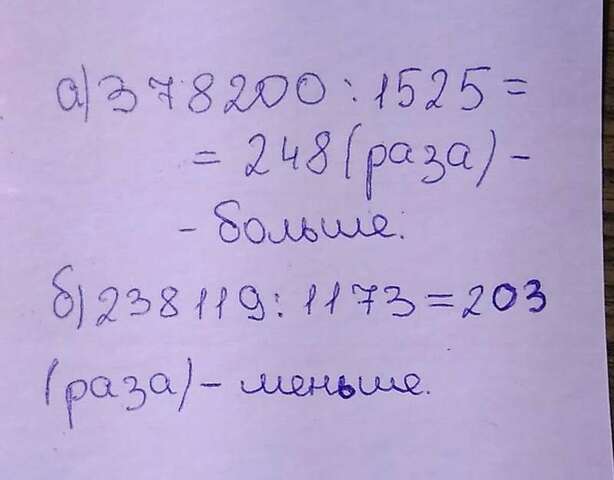 а) 378200 : 1525 =
= 248 (раза) -
- больше.
б) 238119 : 1173 = 203
(раза) - меньше.